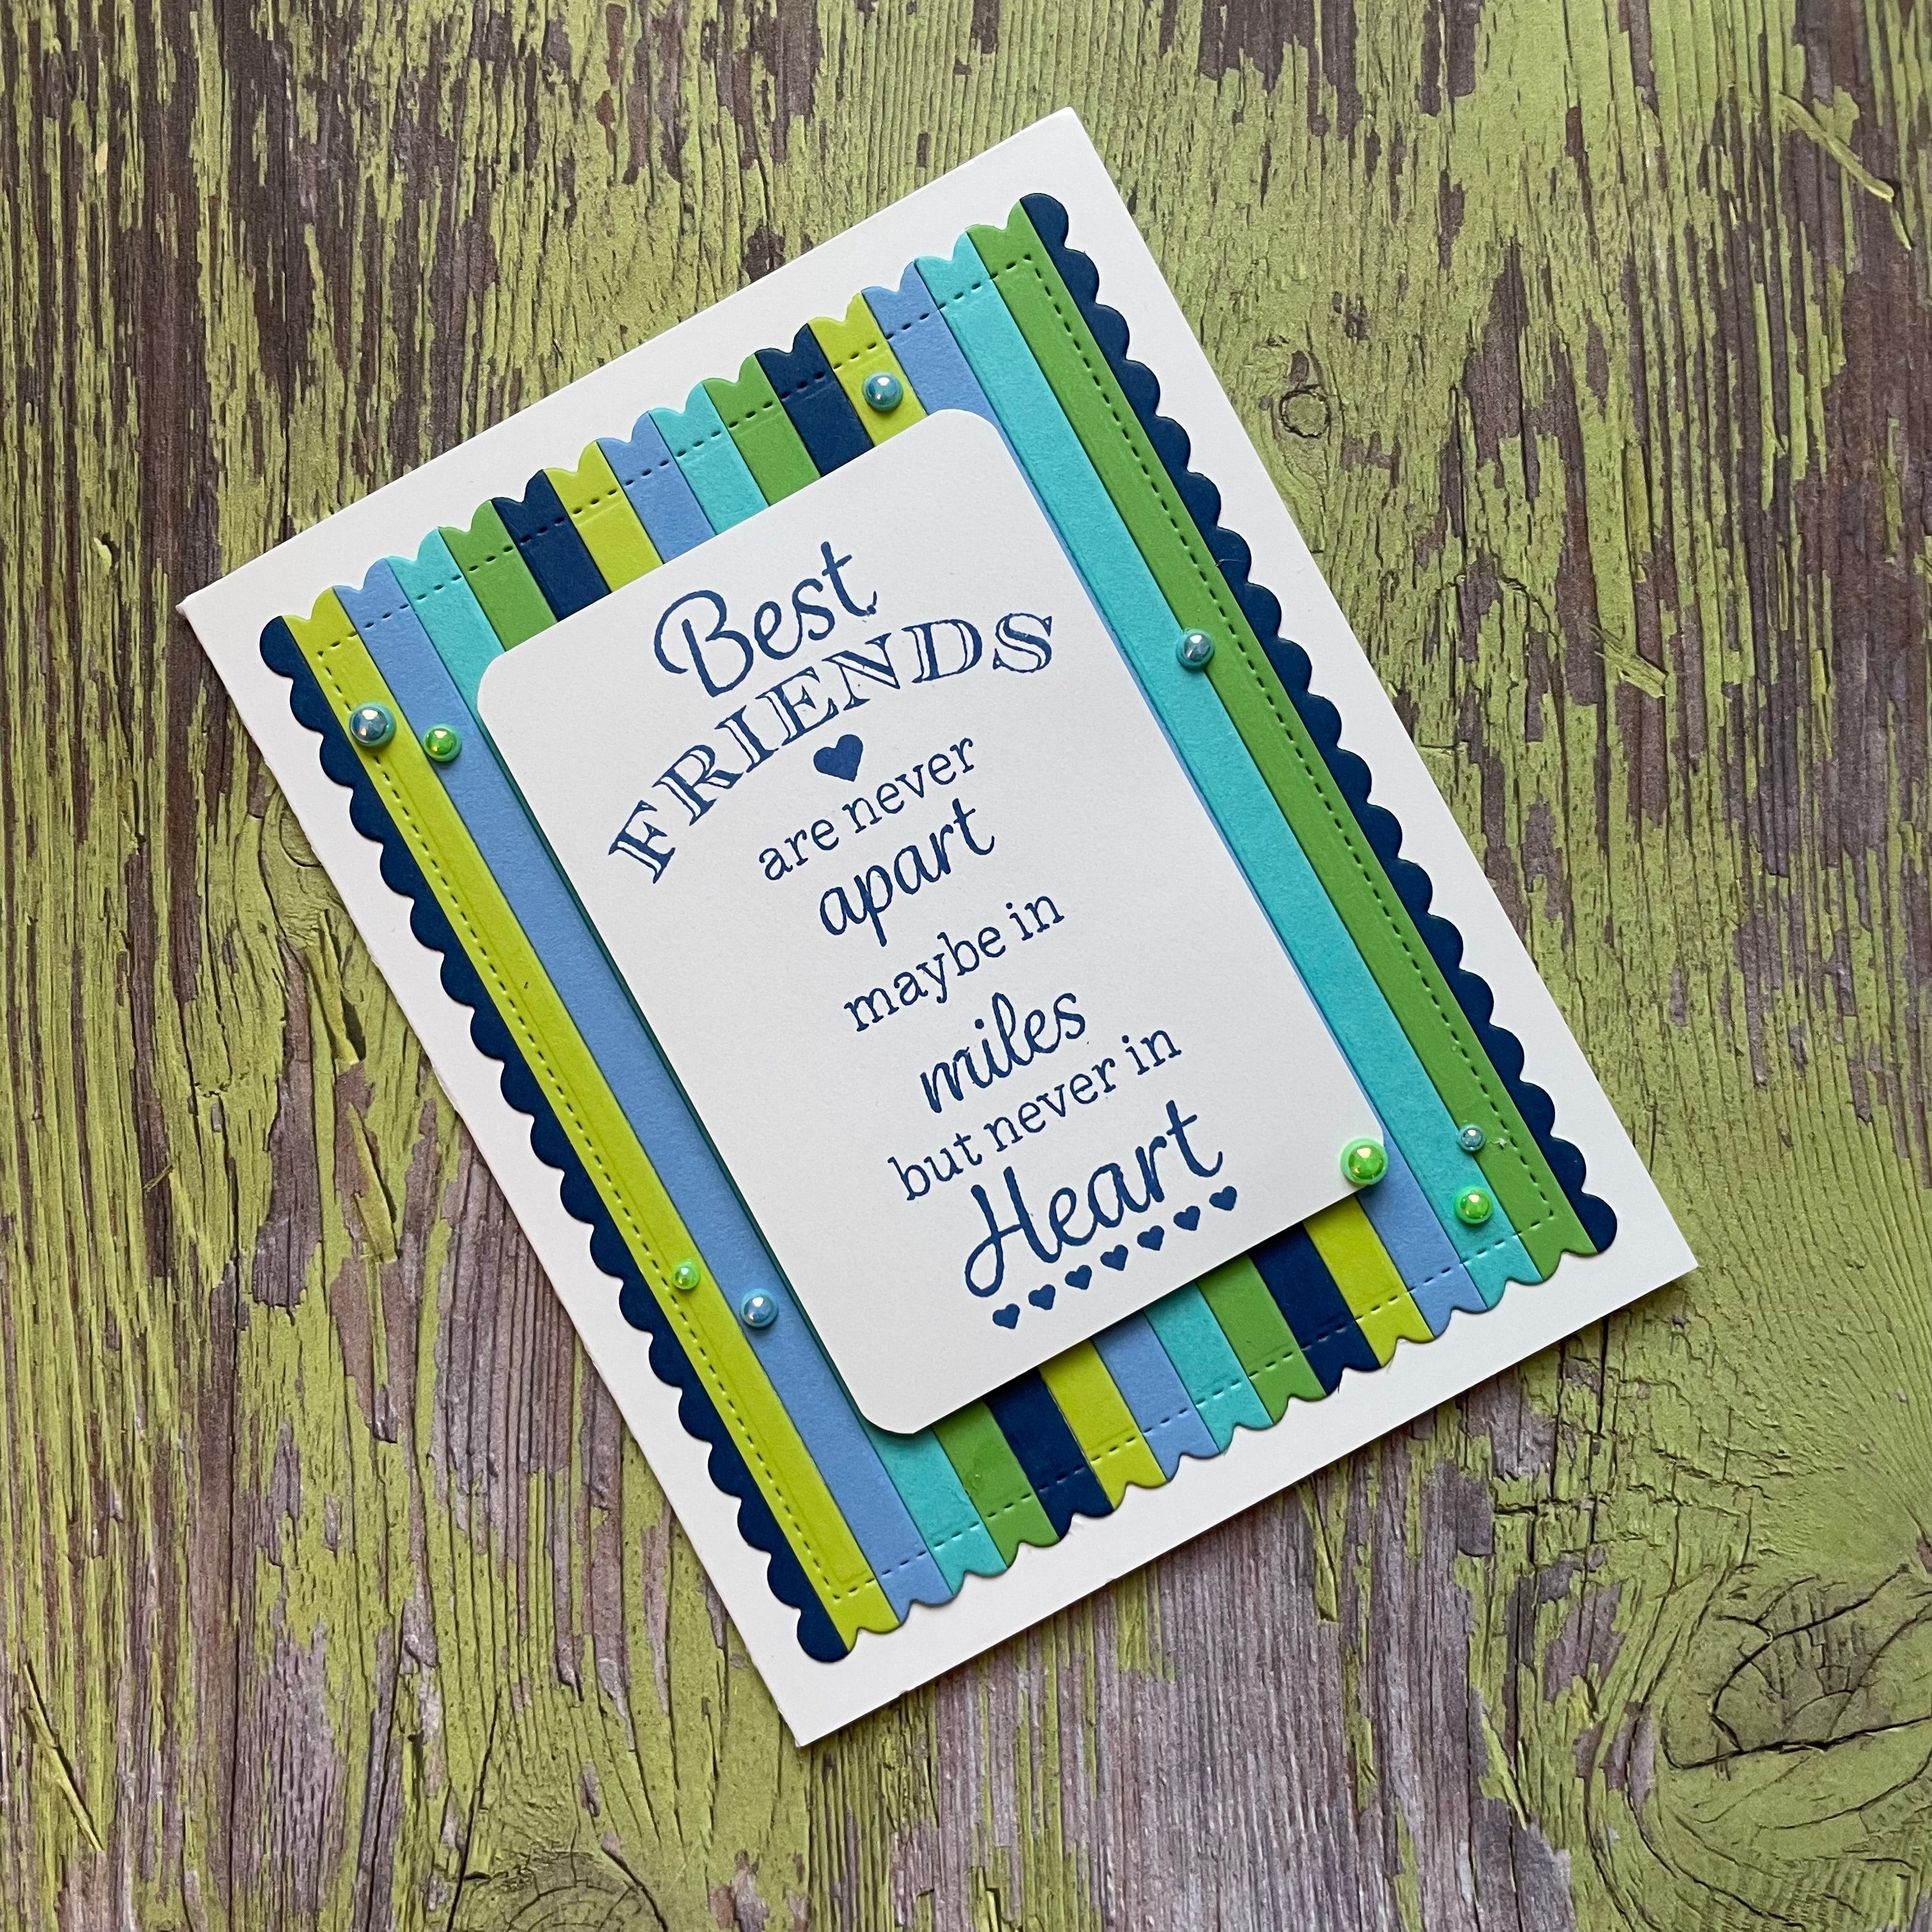 Best
FRIENDS
are never
apart
maybe in
miles
but never in
Heart